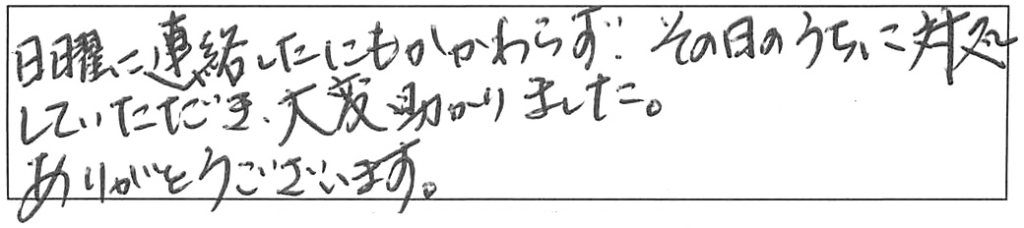 日曜に連絡したにもかかわらず、その日のうちに対処
していただき、大変助かりました。
ありがとうございます。